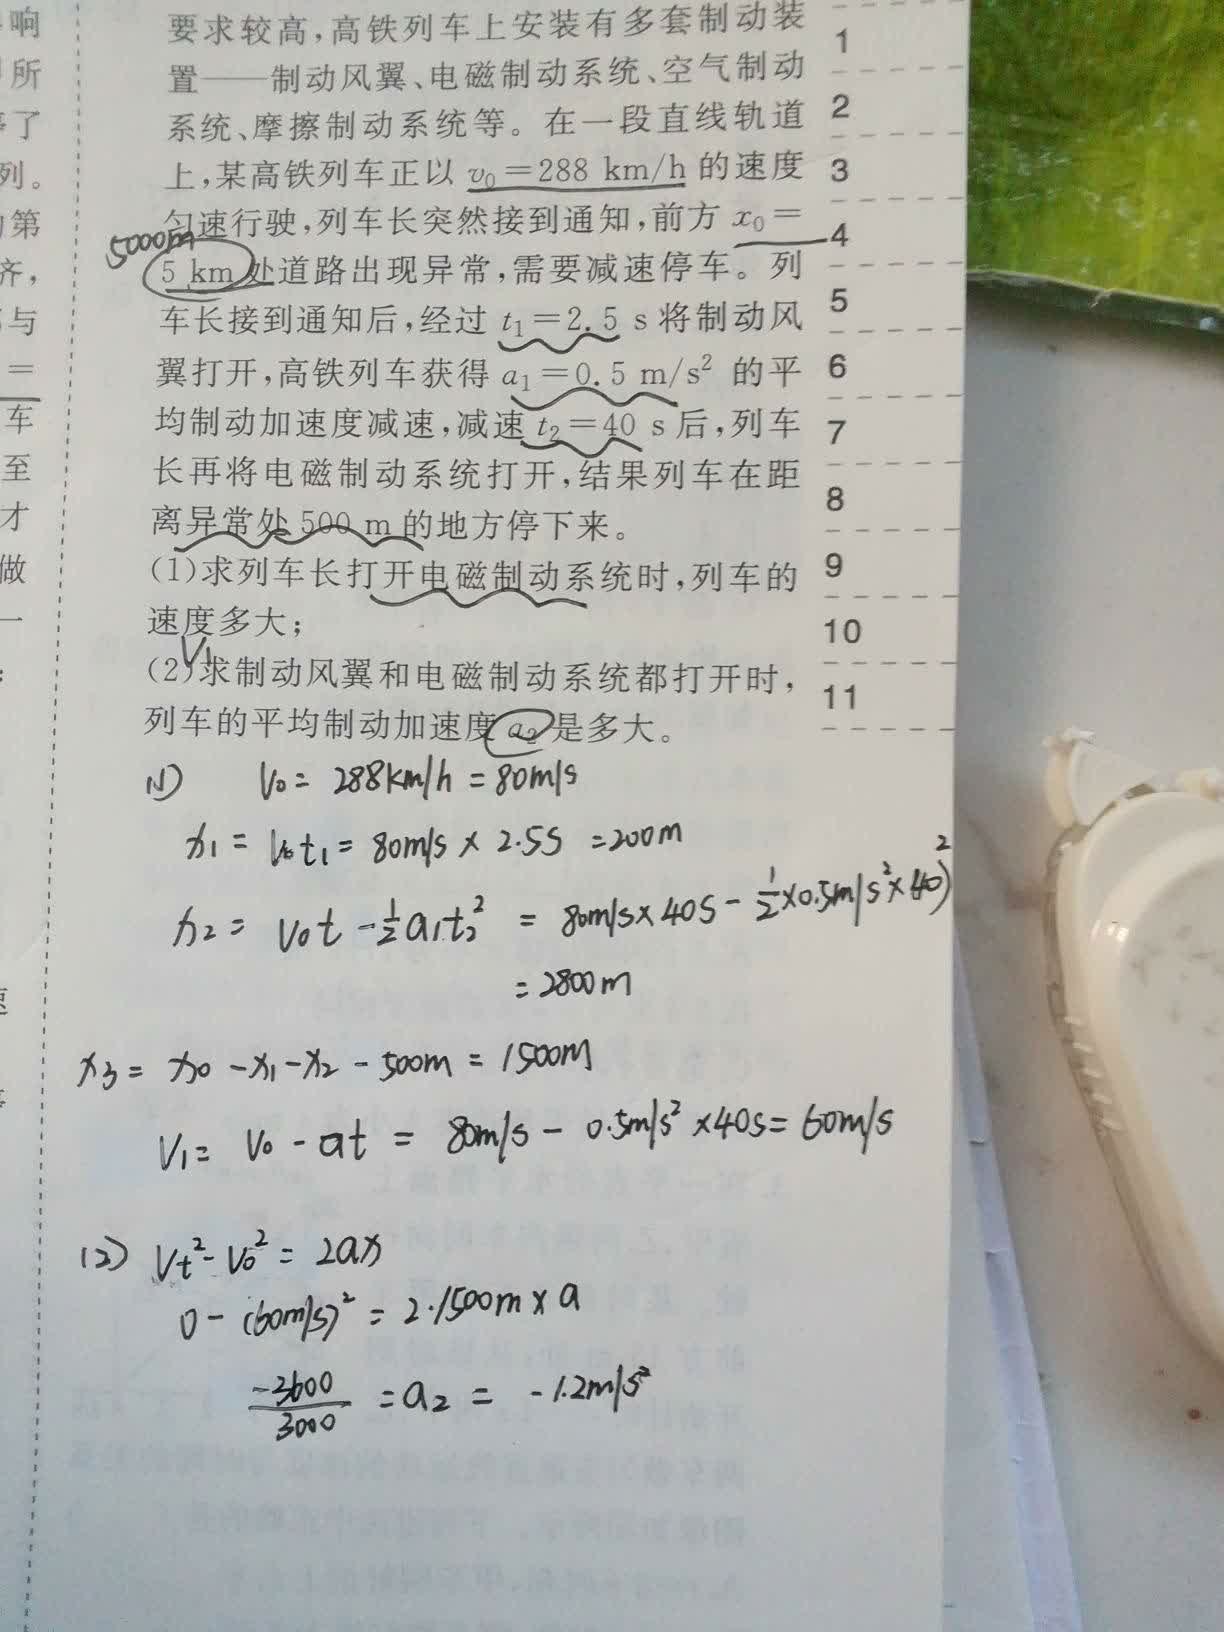 响
所
了
列。
第
齐,
与
=
车
至
才
做
一
要求较高,高铁列车上安装有多套制动装
置——制动风翼、电磁制动系统、空气制动
系统、摩擦制动系统等。在一段直线轨道
上,某高铁列车正以 v₀=288 km/h 的速度
匀速行驶,列车长突然接到通知,前方 x₀=
5000m
5 km 处道路出现异常,需要减速停车。列
车长接到通知后,经过 t₁=2.5 s 将制动风
翼打开,高铁列车获得 a₁=0.5 m/s² 的平
均制动加速度减速,减速 t₂=40 s 后,列车
长再将电磁制动系统打开,结果列车在距
离异常处 500 m 的地方停下来。
(1)求列车长打开电磁制动系统时,列车的
速度多大;
V₁
(2)求制动风翼和电磁制动系统都打开时,
列车的平均制动加速度 a₂ 是多大。
1
2
3
4
5
6
7
8
9
10
11
(1) V₀= 288km/h =80m/s
x₁= V₀t₁= 80m/s × 2.5s =200m
x₂= V₀t-½a₁t₂² = 80m/s×40s-½×0.5m/s²×(40)²
=2800m
x₃= x₀-x₁-x₂-500m=1500m
V₁= V₀-at = 80m/s-0.5m/s²×40s=60m/s
(2) Vt²-V₀²=2ax
0-(60m/s)²=2·1500m×a
-3600/3000 =a₂= -1.2m/s²